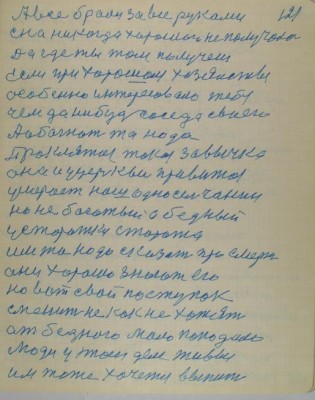 121
А все брали за вие руками
она никогда хорошая не получена
Да где ты том получеш
если при хорошом хозяистве
особенно интересовало тебе
чем данибудь соседа своего
Та надо
Проклятая такая завычка
она и церкви привитая
умерает наш односельчанин
но не богатый а бедный
у сторожки сторожа
им та надо сказат при смерти
они хорошо знают его
но вот свой поступок
сменит некак не хотят
от бедного мало попадало
Люди у том деле живы
им тоже хочетя выпит